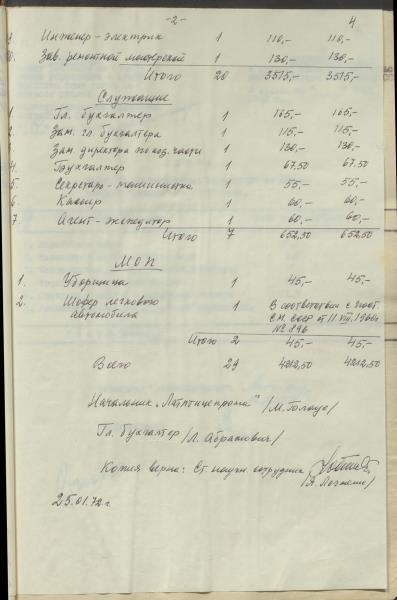 -2-
4
9. Инженер-электрик 1 110,- 110,-
10. Зав. ремонтной мастерской 1 130,- 130,-
Итого 20 3515,- 3515,-
Служащие
1. Гл. бухгалтер 1 165,- 165,-
2. Зам. гл. бухгалтера 1 115,- 115,-
3. Зам. директора по хоз. части 1 130,- 130,-
4. Бухгалтер 1 67,50 67,50
5. Секретарь-машинистка 1 55,- 55,-
6. Кассир 1 60,- 60,-
7. Агент-экспедитор 1 60,- 60,-
Итого 7 652,50 652,50
МОП
1. Уборщица 1 45,- 45,-
2. Шофер легкового 1 В соответствии с пост.
автомобиля СМ. СССР от 11 VIII. 1966г
№ 846
Итого 2 45,- 45,-
Всего 29 4212,50 4212,50
Начальник "Латптицепрома" /М.
Гл. бухгалтер /Л. Абрамович/
Копия верна: Ст. научн. сотрудник
25.01.72 г.